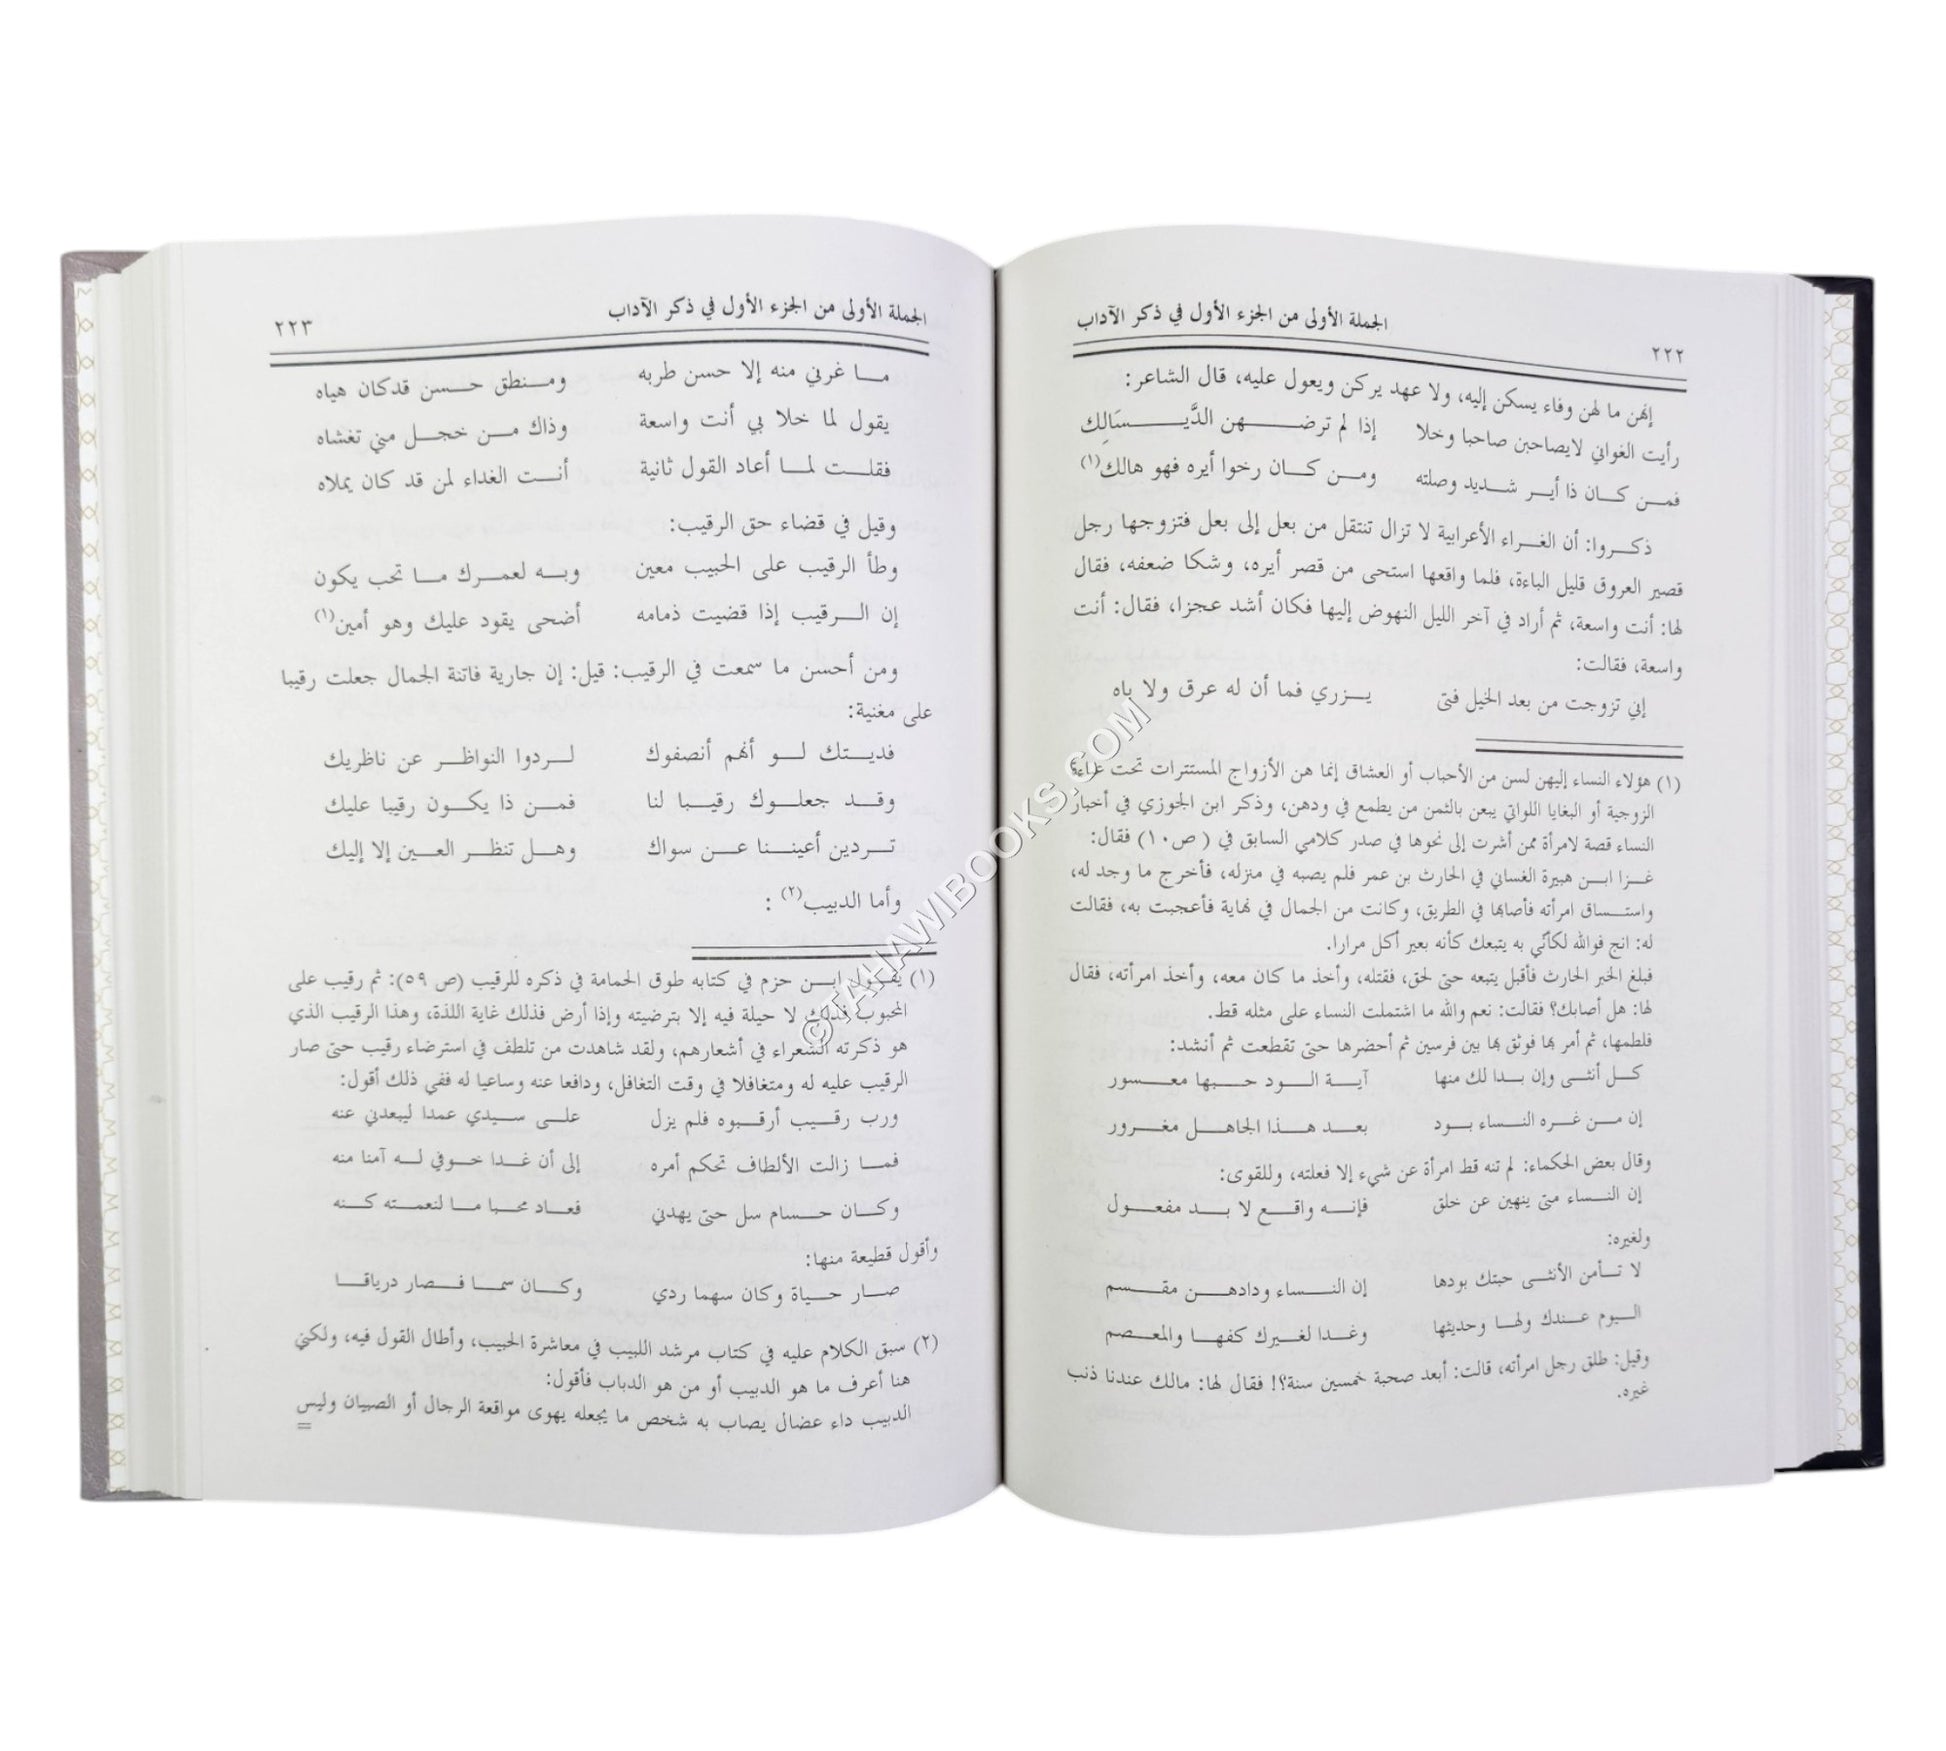 ٢٢٢
الجملة الأولى من الجزء الأول في ذكر الآداب
إنهن ما لهن وفاء يسكن إليه، ولا عهد يركن ويعول عليه، قال الشاعر:
رأيت الغواني لايصاحبن صاحبا وخلا إذا لم ترضهن الدَّيسَالِك
فمن كان ذا أير شديد وصلته ومن كان رخوا أيره فهو هالك(١)
ذكروا: أن الغراء الأعرابية لا تزال تنتقل من بعل إلى بعل فتزوجها رجل
قصير العروق قليل الباءة، فلما واقعها استحى من قصر أيره، وشكا ضعفه، فقال
لها: أنت واسعة، ثم أراد في آخر الليل النهوض إليها فكان أشد عجزا، فقال: أنت
واسعة، فقالت:
إني تزوجت من بعد الخيل فتى يزري فما أن له عرق ولا باه
(١) هؤلاء النساء إليهن لسن من الأحباب أو العشاق إنما هن الأزواج المستترات تحت عباءة
الزوجية أو البغايا اللواتي يبعن بالثمن من يطمع في ودهن، وذكر ابن الجوزي في أخبار
النساء قصة لامرأة ممن أشرت إلى نحوها في صدر كلامي السابق في ( ص١٠) فقال:
غزا ابن هبيرة الغساني في الحارث بن عمر فلم يصبه في منزله، فأخرج ما وجد له،
واستساق امرأته فأصابها في الطريق، وكانت من الجمال في نهاية فأعجبت به، فقالت
له: انج فوالله لكأنّي به يتبعك كأنه بعير أكل مرارا.
فبلغ الخبر الحارث فأقبل يتبعه حتى لحق، فقتله، وأخذ ما كان معه، وأخذ امرأته، فقال
لها: هل أصابك؟ فقالت: نعم والله ما اشتملت النساء على مثله قط.
فلطمها، ثم أمر بها فوثق بها بين فرسين ثم أحضرها حتى تقطعت ثم أنشد:
كل أنثى وإن بدا لك منها آية الود حبها معسور
إن من غره النساء بود بعد هذا الجاهل مغرور
وقال بعض الحكماء: لم تنه قط امرأة عن شيء إلا فعلته، وللقوى:
إن النساء متى ينهين عن خلق فإنه واقع لا بد مفعول
ولغيره:
لا تأمن الأنثى حبتك بودها إن النساء ودادهن مقسم
اليوم عندك ولها وحديثها وغدا لغيرك كفها والمعصم
وقيل: طلق رجل امرأته، قالت: أبعد صحبة خمسين سنة؟! فقال لها: مالك عندنا ذنب
غيره.
الجملة الأولى من الجزء الأول في ذكر الآداب
٢٢٣
ما غرني منه إلا حسن طربه ومنطق حسن قدكان هياه
يقول لما خلا بي أنت واسعة وذاك من خجل مني تغشاه
فقلت لما أعاد القول ثانية أنت الغداء لمن قد كان يملاه
وقيل في قضاء حق الرقيب:
وطأ الرقيب على الحبيب معين وبه لعمرك ما تحب يكون
إن الرقيب إذا قضيت ذمامه أضحى يقود عليك وهو أمين(١)
ومن أحسن ما سمعت في الرقيب: قيل: إن جارية فاتنة الجمال جعلت رقيبا
على مغنية:
فديتك لو أنهم أنصفوك لردوا النواظر عن ناظريك
وقد جعلوك رقيبا لنا فمن ذا يكون رقيبا عليك
تردين أعيننا عن سواك وهل تنظر العين إلا إليك
وأما الدبيب(٢) :
(١) يقول ابن حزم في كتابه طوق الحمامة في ذكره للرقيب (ص ٥٩): ثم رقيب على
المحبوب فذلك لا حيلة فيه إلا بترضيته وإذا أرض فذلك غاية اللذة، وهذا الرقيب الذي
هو ذكرته الشعراء في أشعارهم، ولقد شاهدت من تلطف في استرضاء رقيب حتى صار
الرقيب عليه له ومتغافلا في وقت التغافل، ودافعا عنه وساعيا له ففي ذلك أقول:
ورب رقيب أرقبوه فلم يزل على سيدي عمدا ليبعدني عنه
فما زالت الألطاف تحكم أمره إلى أن غدا خوفي له آمنا منه
وكان حسام سل حتى يهدني فعاد محبا ما لنعمته كنه
وأقول قطيعة منها:
صار حياة وكان سهما ردي وكان سما فصار درياقا
(٢) سبق الكلام عليه في كتاب مرشد اللبيب في معاشرة الحبيب، وأطال القول فيه، ولكني
هنا أعرف ما هو الدبيب أو من هو الدباب فأقول:
الدبيب داء عضال يصاب به شخص ما يجعله يهوى مواقعة الرجال أو الصبيان وليس
=
©TAHAWIBOOKS.COM